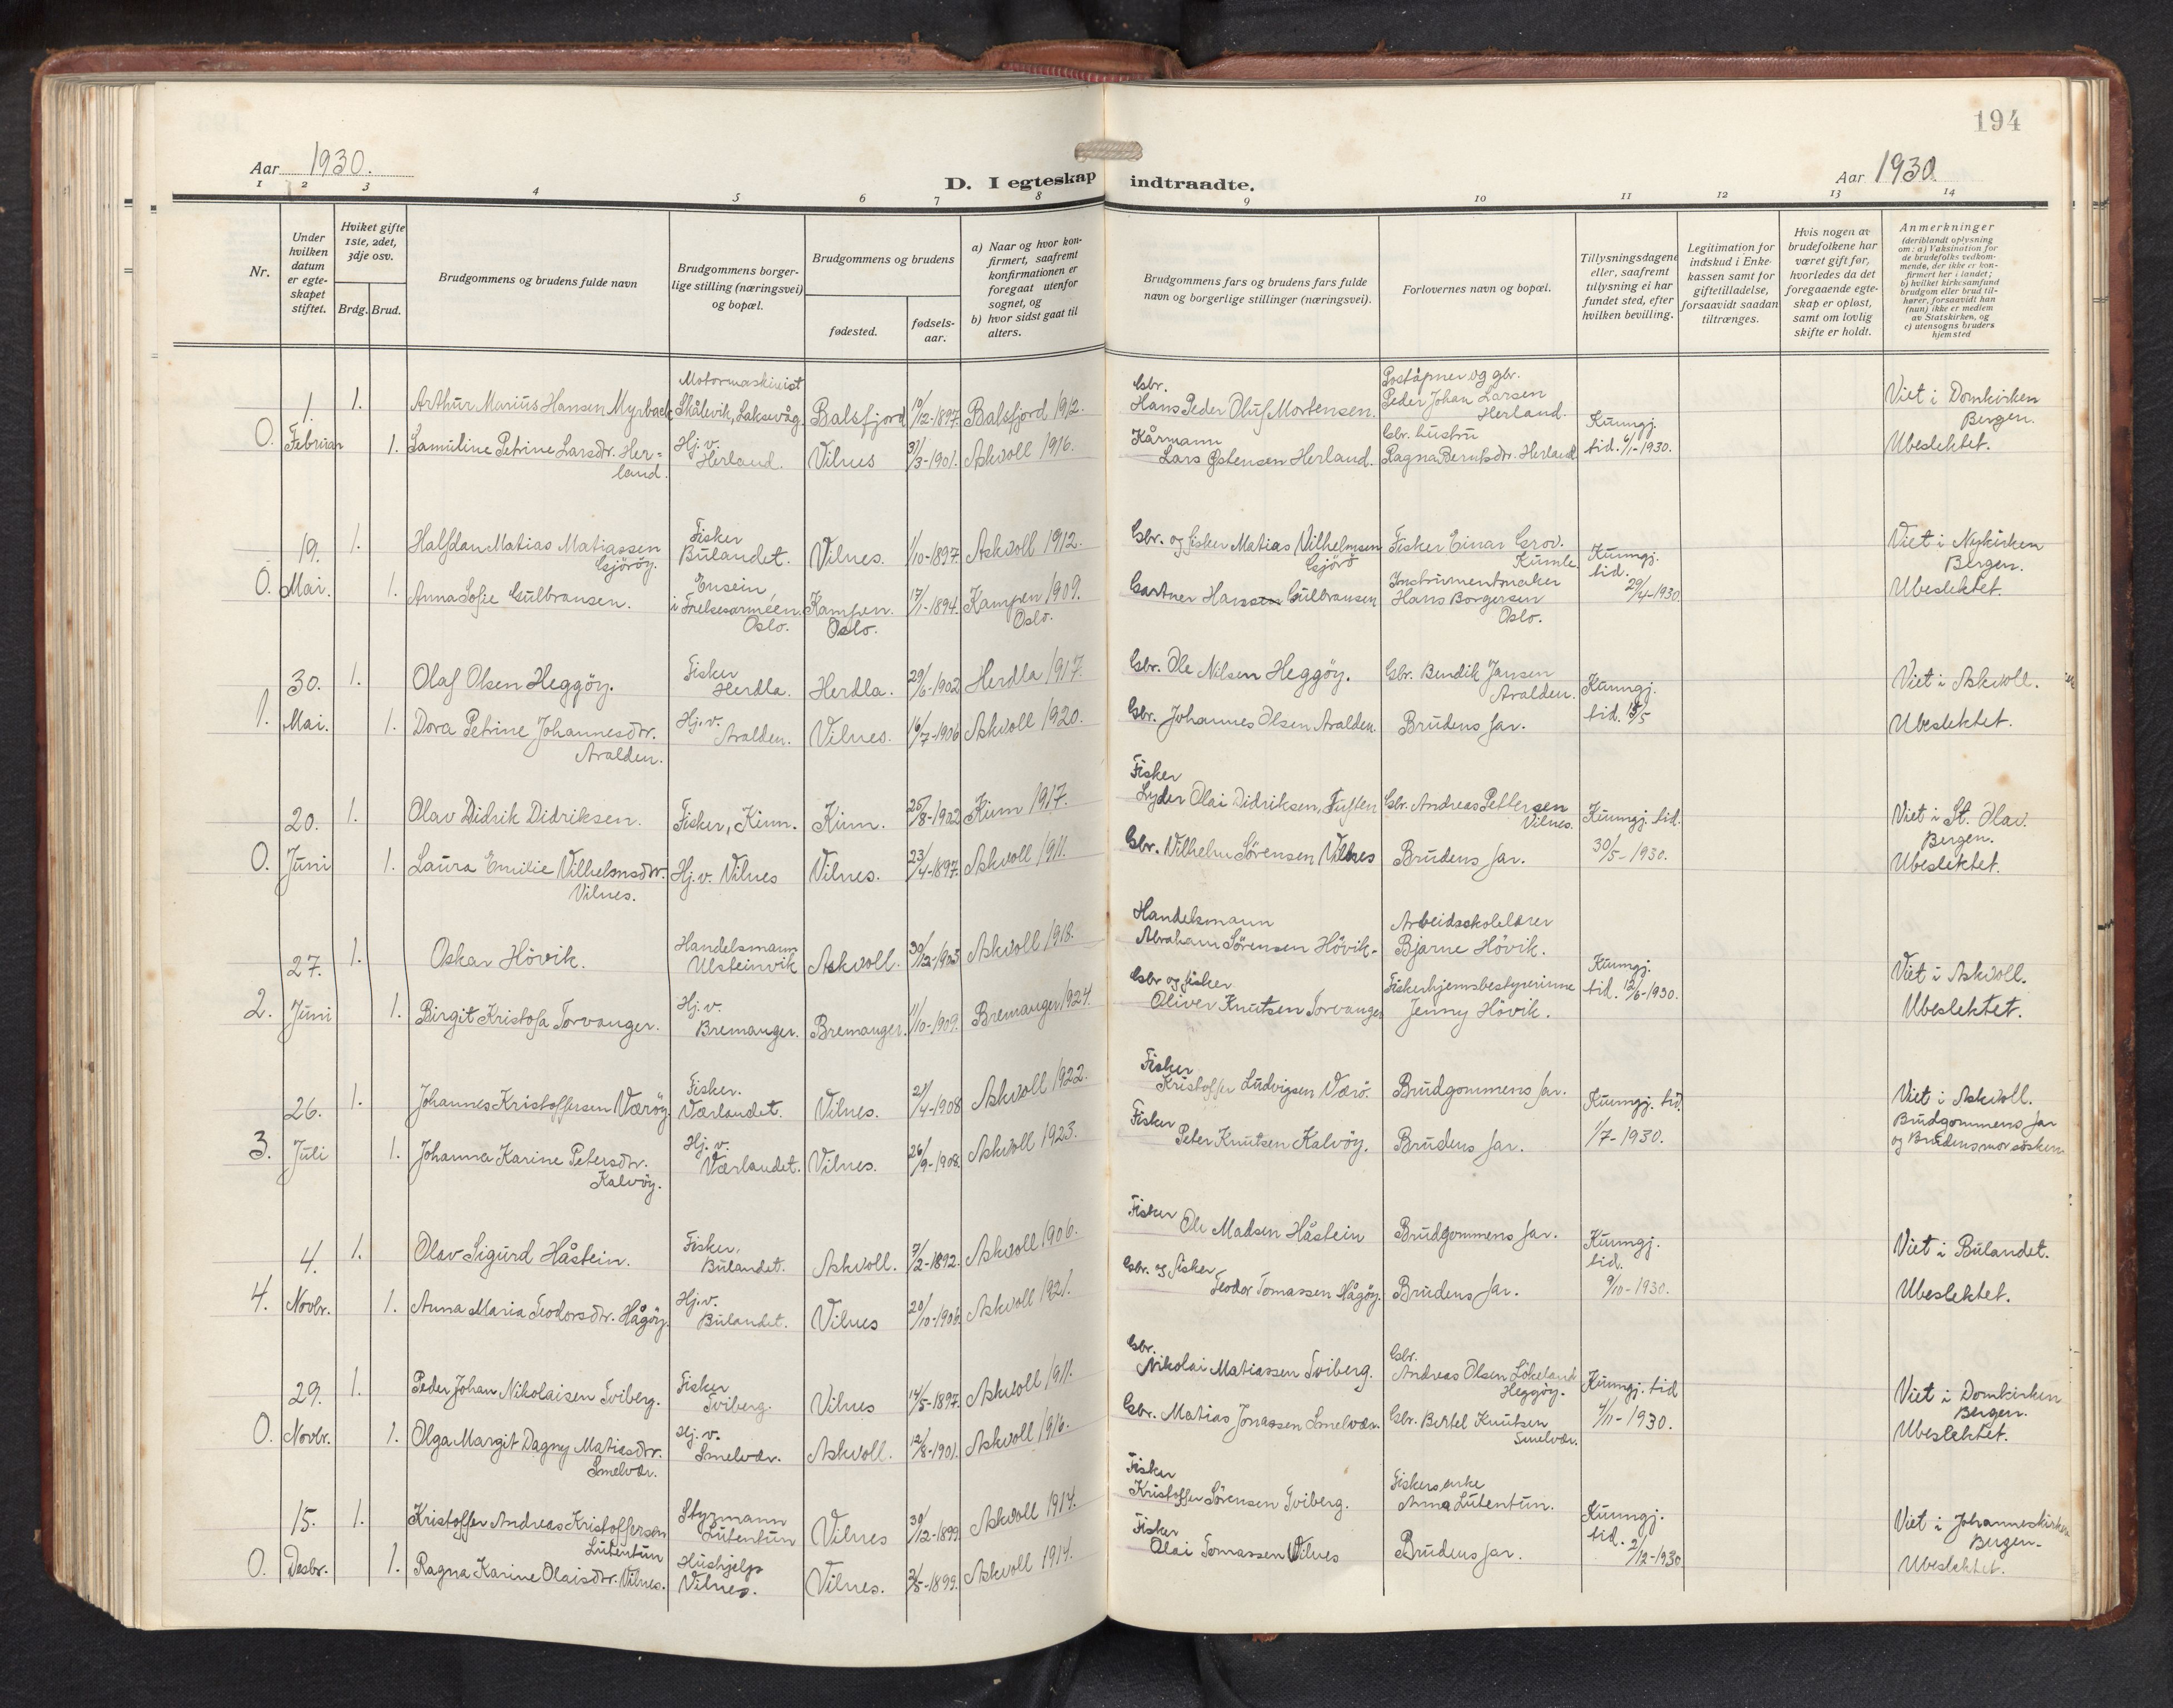 194
Aar 1930.
D. I egteskap indtraadte.
Aar 1930.
1 2 3 4 5 6 7 8 9 10 11 12 13 14
Nr.
Under hvilken datum er egteskapet stiftet.
Hviket gifte 1ste, 2det, 3dje osv.
Brdg. Brud.
Brudgommens og brudens fulde navn
Brudgommens borgerlige stilling (næringsvei) og bopæl.
Brudgommens og brudens
fødested.
fødselsaar.
a) Naar og hvor konfirmert, saafremt konfirmationen er foregaat utenfor sognet, og
b) hvor sidst gaat til alters.
Brudgommens fars og brudens fars fulde navn og borgerlige stillinger (næringsvei).
Forlovernes navn og bopæl.
Tillysningsdagene eller, saafremt tillysning ei har fundet sted, efter hvilken bevilling.
Legitimation for indskud i Enkekassen samt for giftetilladelse, forsaavidt saadan tiltrænges.
Hvis nogen av brudefolkene har været gift før, hvorledes da det foregaaende egteskap er opløst, samt om lovlig skifte er holdt.
Anmerkninger
(deriblandt oplysning om: a) Vaksination for de brudefolks vedkommende, der ikke er konfirmert her i landet;
b) hvilket kirkesamfund brudgom eller brud tilhører, forsaavidt han (hun) ikke er medlem av Statskirken, og
c) utensogns bruders hjemsted
0. 1. Februar
1. Arthur Marius Hansen Myrback
Motormaskinist
Skålevik, Laksevåg
Balsfjord 10/12-1897. Balsfjord 1912.
Gbr.
Hans Peder Oluf Mortensen.
Poståpner og gbr.
Peder Johan Larsen
Herland.
Kunngj.
tid. 6/1-1930.
Viet i Domkirken
Bergen.
Ubeslektet.
1. Samuline Petrine Larsdtr. Her=
land.
Hj. v.
Herland.
Vilnes 31/3-1901. Askvoll 1916.
Kårmann
Lars Østensen Herland.
Gbr. hustru
Ragna Berntsdtr. Herland
0. 19. Mai.
1. Halfdan Matias Matiassen
Gjöröy.
Fisker
Bulandet.
Vilnes. 1/10-1897 Askvoll 1912.
Gbr. og fisker Matias Vilhelmsen
Gjörö
Fisker Einar Grov.
Kumle.
Kunngj.
tid.
29/4-1930.
Viet i Nykirken
Bergen.
Ubeslektet.
1. Anna Sofie Gulbransen.
Ensein,
i Frelsesarméen
Oslo.
Kampen.
Oslo.
17/1-1894. Kampen 1909.
Oslo.
Gartner Hans Gulbransen
Instrumentmaker
Hans Borgersen
Oslo.
1. 30. Mai.
1. Olaf Olsen Heggöy.
Fisker
Herdla.
Herdla. 29/6-1902 Herdla 1917.
Gbr. Ole Nilsen Heggöy.
Gbr. Bendik Jansen
Aralden.
Kunngj.
tid. 15/5
Viet i Askvoll.
Ubeslektet.
1. Dora Petrine Johannesdtr.
Aralden.
Hj. v.
Aralden.
Vilnes. 16/7-1906 Askvoll 1920.
Gbr. Johannes Olsen Aralden.
Brudens far.
0. 20. Juni
1. Olav Didrik Didriksen.
Fisker, Kinn.
Kinn. 25/8-1902 Kinn 1917.
Fisker
Lyder Olai Didriksen, Tuften
Gbr. Andreas Pettersen
Vilnes.
Kunngj. tid.
30/5-1930.
Viet i St. Olav.
Bergen.
Ubeslektet.
1. Laura Emilie Vilhelmsdtr.
Vilnes.
Hj. v. Vilnes
Vilnes. 23/4-1897. Askvoll 1911.
Gbr. Vilhelm Sörensen Vilnes
Brudens far.
2. 27. Juni
1. Oskar Hövik.
Handelsmann
Ulsteinvik
Askvoll. 30/12-1903 Askvoll 1918.
Handelsmann
Abraham Sörensen Hövik-
Arbeidsskolelærer
Bjarne Hövik.
Kunngj.
tid. 12/6-1930.
Viet i Askvoll.
Ubeslektet.
1. Birgit Kristofa Torvanger.
Hj. v.
Bremanger.
Bremanger. 11/10-1909. Bremanger 1924.
Gbr og fisker
Oliver Knutsen Torvanger
Fiskerhjemsbestyrerinne
Jenny Hövik.
3. 26. Juli
1. Johannes Kristoffersen Væröy.
Fisker.
Værlandet.
Vilnes. 21/4-1908 Askvoll 1922.
Fisker
Kristoffer Ludvigsen Værö.
Brudgommens far.
Kunngj. tid.
1/7-1930.
Viet i Askvoll.
Brudgommens far
og Brudens mor sösken
1. Johanna Karine Petersdtr.
Kalvöy.
Hj. v.
Værlandet.
Vilnes. 26/9-1908. Askvoll 1923.
Fisker
Peter Knutsen Kalvöy.
Brudens far.
4. 4. Novbr.
1. Olav Sigurd Håstein.
Fisker.
Bulandet.
Askvoll. 7/2-1892. Askvoll 1906.
Fisker
Ole Madsen Håstein
Brudgommens far.
Kunngj.
tid.
9/10-1930.
Viet i Bulandet.
Ubeslektet.
1. Anna Maria Teodorsdtr. Hågöy.
Hj. v.
Bulandet.
Vilnes 20/10-1906. Askvoll 1921.
Gbr. og fisker
Teodor Tomassen Hågöy.
Brudens far.
0. 29. Novbr.
1. Peder Johan Nikolaisen Tviberg.
Fisker
Tviberg.
Vilnes 14/5-1897. Askvoll 1911.
Gbr.
Nikolai Matiassen Tviberg.
Gbr.
Andreas Olsen Lökeland
Heggöy.
Kunngj. tid
4/11-1930.
Viet i Domkirken
Bergen.
Ubeslektet.
1. Olga Margit Dagny Matiasdtr.
Smelvær.
Hj. v.
Smelvær.
Askvoll. 12/8-1901. Askvoll 1916.
Gbr. Matias Jonassen Smelvær.
Gbr. Bertel Knutsen
Smelvær.
0. 15. Desbr.
1. Kristoffer Andreas Kristoffersen
Lutentun
Styrmann
Lutentun
Vilnes 30/12-1899. Askvoll 1914.
Fisker
Kristoffer Sörensen Tviberg.
Fiskerenke
Anna Lutentun.
Kunngj.
tid. 2/12-1930.
Viet i Johanneskirken
Bergen-
Ubeslektet.
1. Ragna Karine Olaisdtr. Vilnes.
Hushjelp
Vilnes.
Vilnes. 2/5-1899. Askvoll 1914.
Fisker
Olai Tomassen Vilnes
Brudens far.